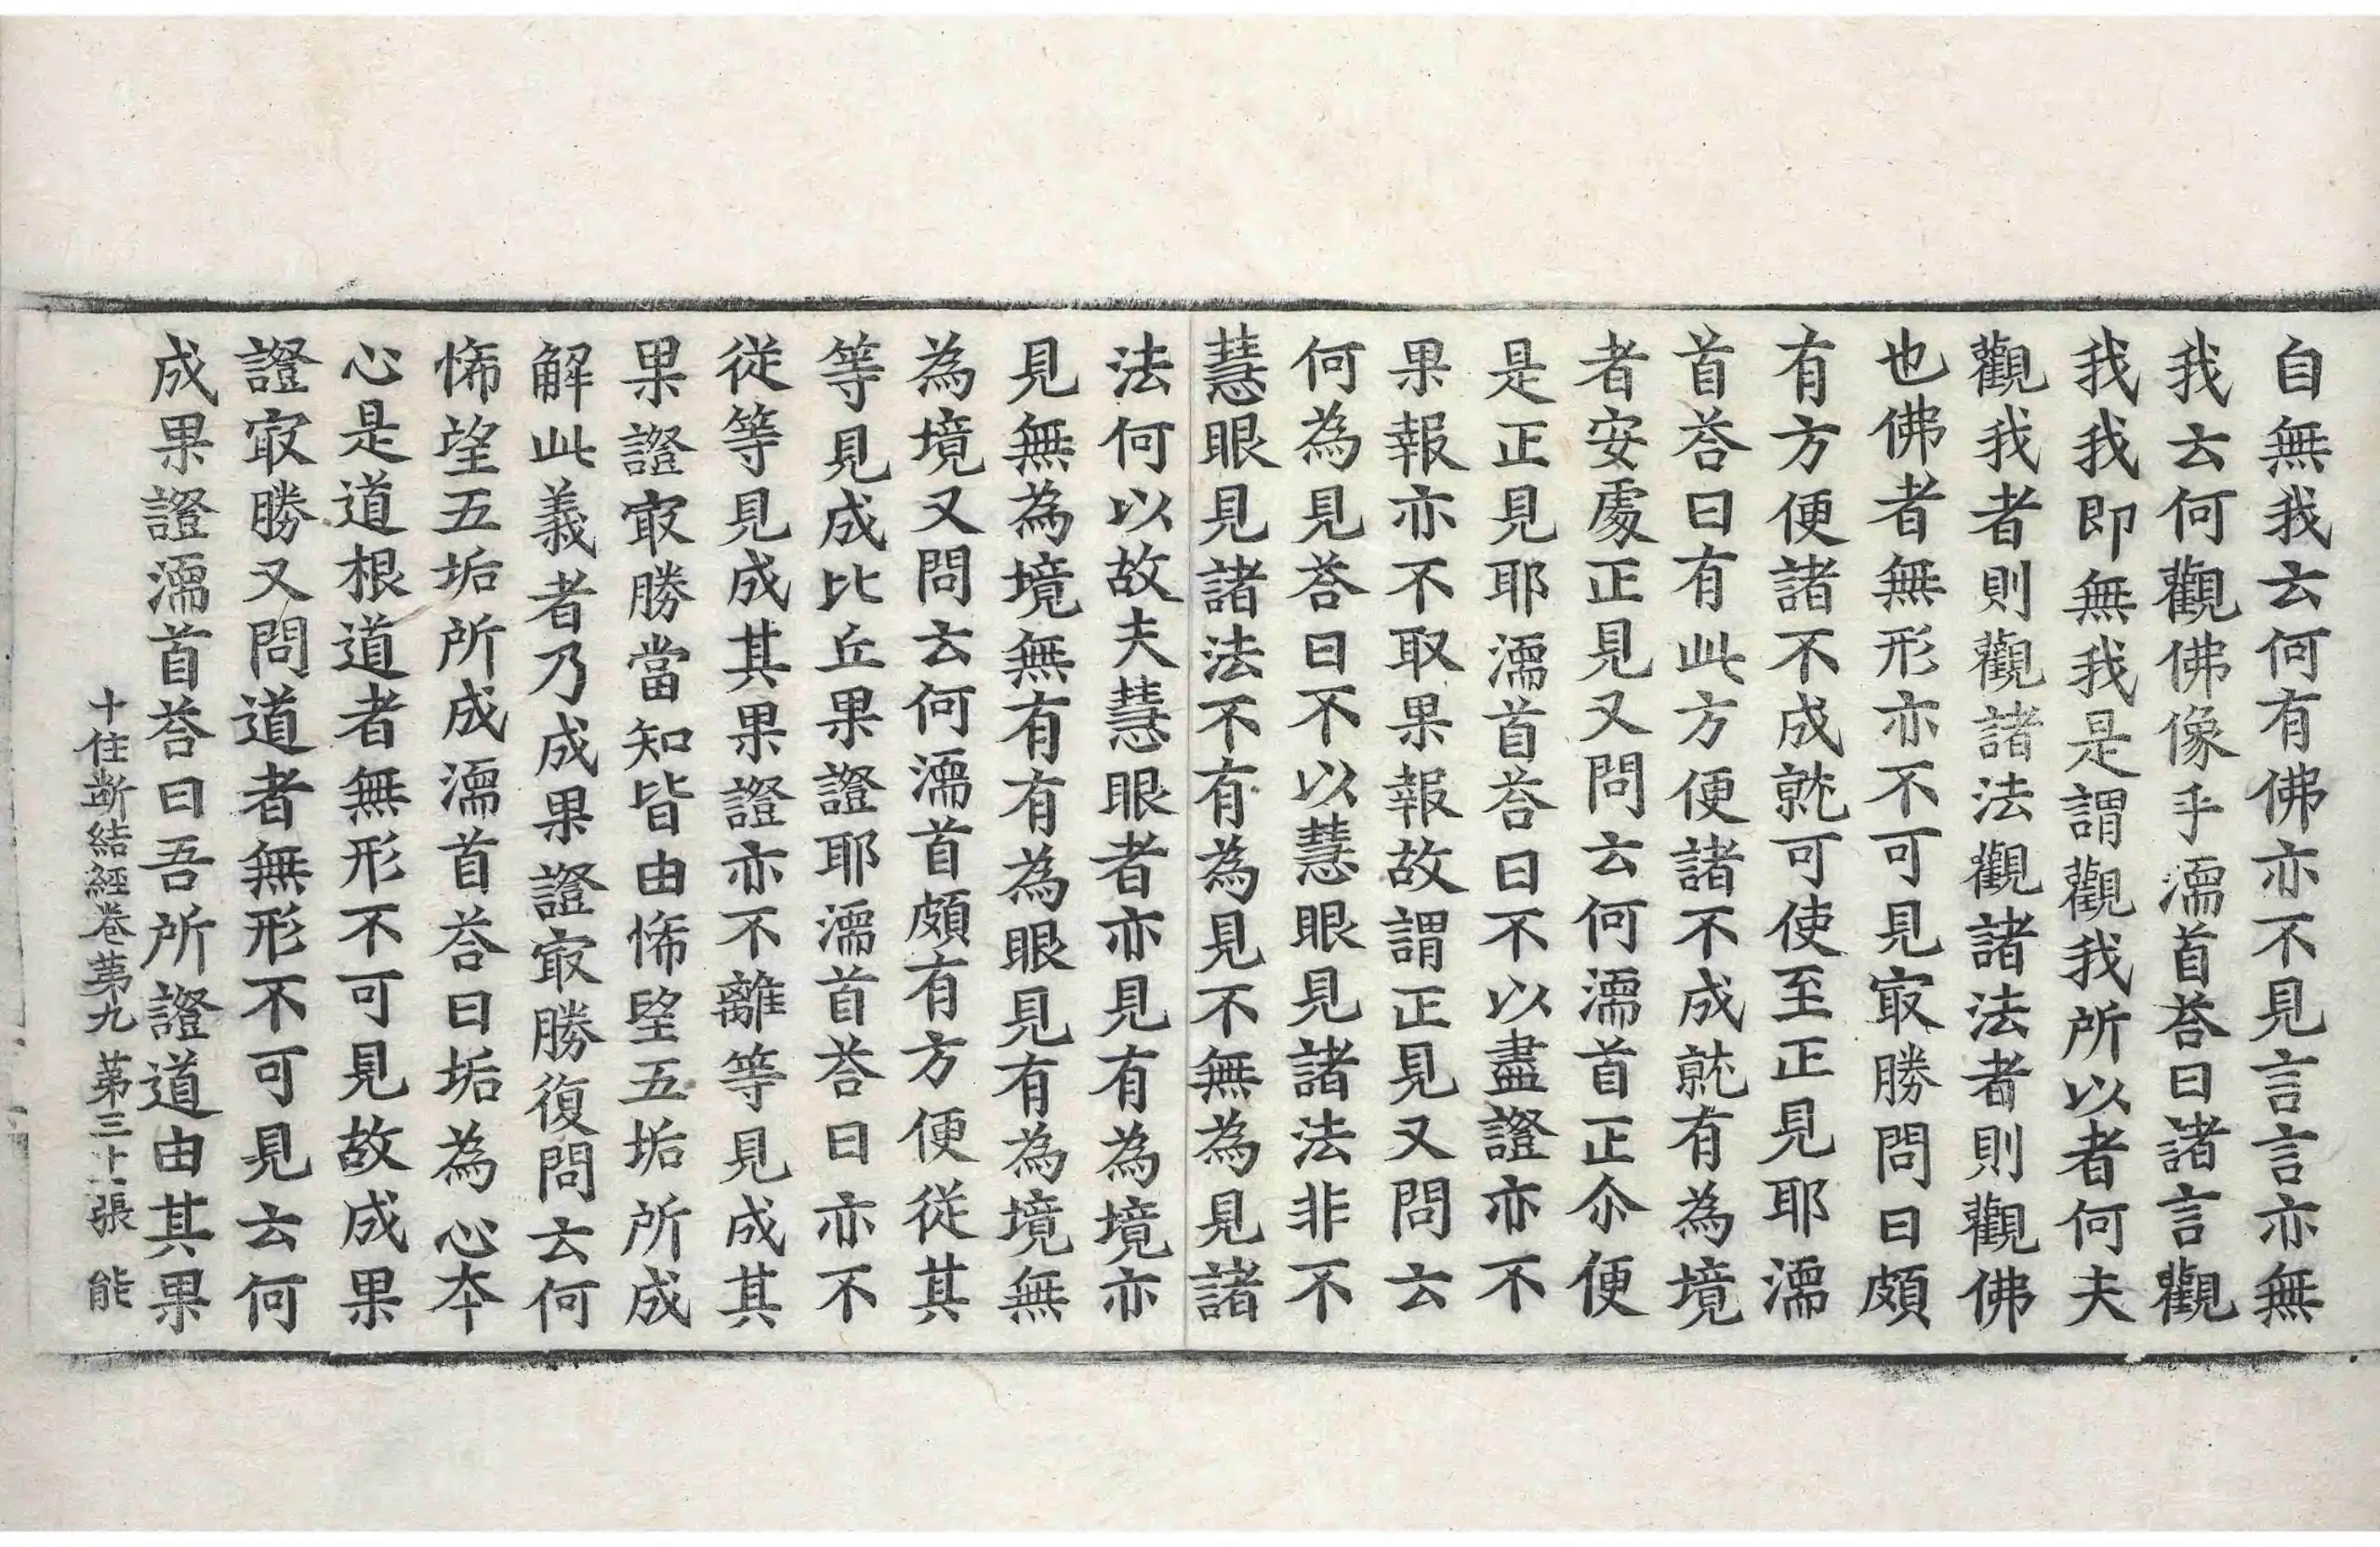 自無我云何有佛亦不見言言亦無
我云何觀佛像乎濡首荅曰諸言觀
我我即無我是謂觀我所以者何夫
觀我者則觀諸法觀諸法者則觀佛
也佛者無形亦不可見㝡勝問曰頗
有方便諸不成就可使至正見耶濡
首荅曰有此方便諸不成就有為境
者安處正見又問云何濡首正尒便
是正見耶濡首荅曰不以盡證亦不
果報亦不取果報故謂正見又問云
何為見荅曰不以慧眼見諸法非不
慧眼見諸法不有為見不無為見諸
法何以故夫慧眼者亦見有為境亦
見無為境無有有為眼見有為境無
為境又問云何濡首頗有方便從其
等見成比丘果證耶濡首荅曰亦不
從等見成其果證亦不離等見成其
果證㝡勝當知皆由悕望五垢所成
解此義者乃成果證㝡勝復問云何
悕望五垢所成濡首荅曰垢為心本
心是道根道者無形不可見故成果
證㝡勝又問道者無形不可見云何
成果證濡首荅曰吾所證道由其果
十住斷結經卷第九 第三十張 能